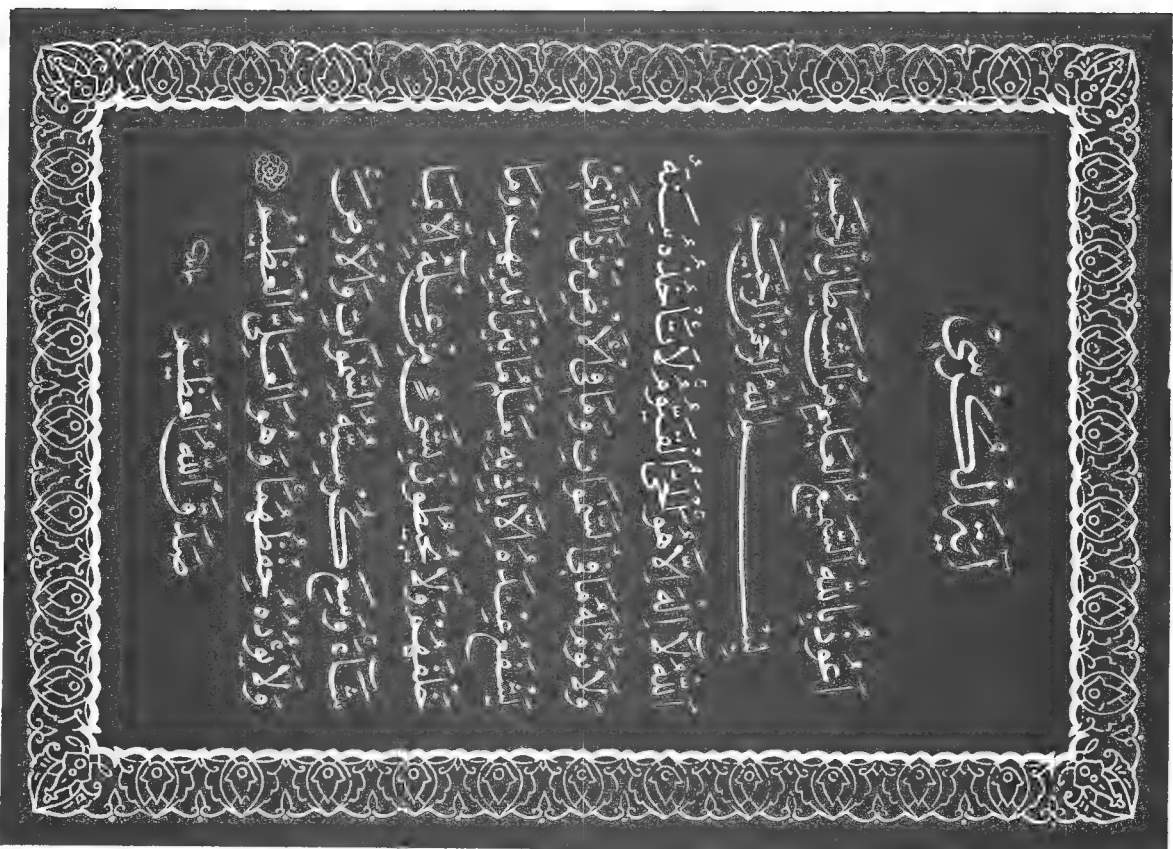 آيَةُ الْكُرْسِيِّ
اَعُوذُ بِاللهِ السَّمِيعِ الْعَلِيمِ مِنَ الشَّيْطَانِ الرَّجِيمِ
بِسْمِ اللهِ الرَّحْمٰنِ الرَّحِيمِ
اَللهُ لَا اِلٰهَ اِلَّا هُوَ الْحَيُّ الْقَيُّومُ لَا تَأْخُذُهُ سِنَةٌ
وَلَا نَوْمٌ لَهُ مَا فِي السَّمٰوَاتِ وَمَا فِي الْاَرْضِ مَنْ ذَا الَّذِي
يَشْفَعُ عِنْدَهُ اِلَّا بِاِذْنِهِ يَعْلَمُ مَا بَيْنَ اَيْدِيهِمْ وَمَا
خَلْفَهُمْ وَلَا يُحِيطُونَ بِشَيْءٍ مِنْ عِلْمِهِ اِلَّا بِمَا
شَاءَ وَسِعَ كُرْسِيُّهُ السَّمٰوَاتِ وَالْاَرْضَ
وَلَا يَؤُدُهُ حِفْظُهُمَا وَهُوَ الْعَلِيُّ الْعَظِيمُ
صَدَقَ اللهُ الْعَظِيمُ